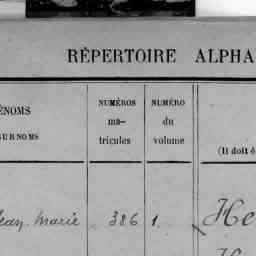 RÉPERTOIRE ALPHA
ÉNOMS
SURNOMS
NUMÉROS
ma-
tricules
NUMÉRO
du
volume
(Il doit ê
Jean Marie 386 1. He